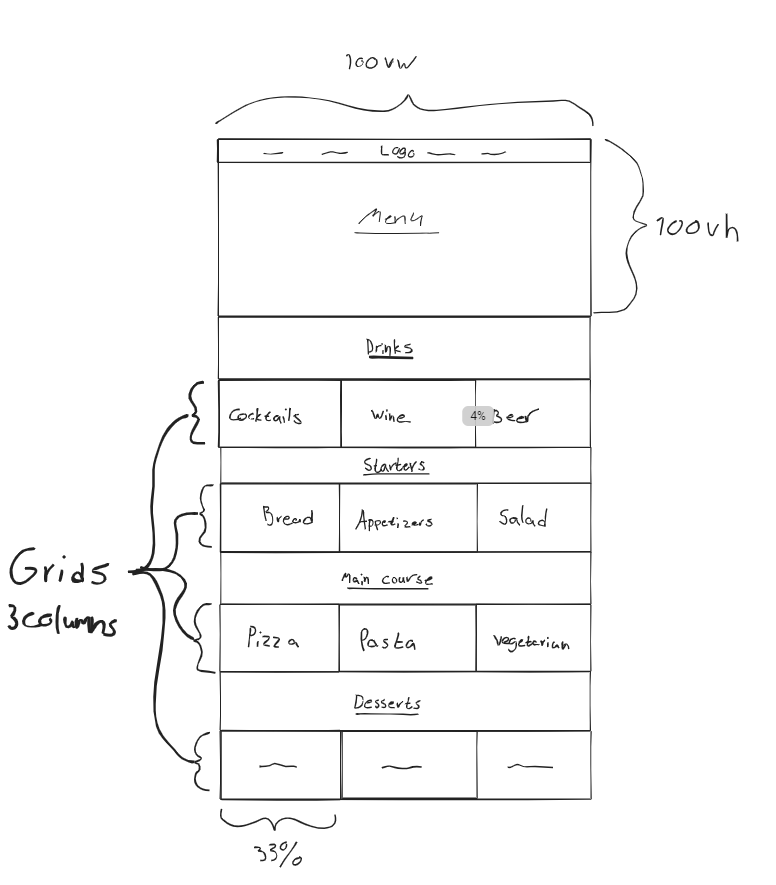 100vw
Logo
Menu
100vh
Drinks
Cocktails
Wine
4%
Beer
Starters
Bread
Appetizers
Salad
Grids
3columns
Main course
Pizza
Pasta
Vegetarian
Desserts
33%